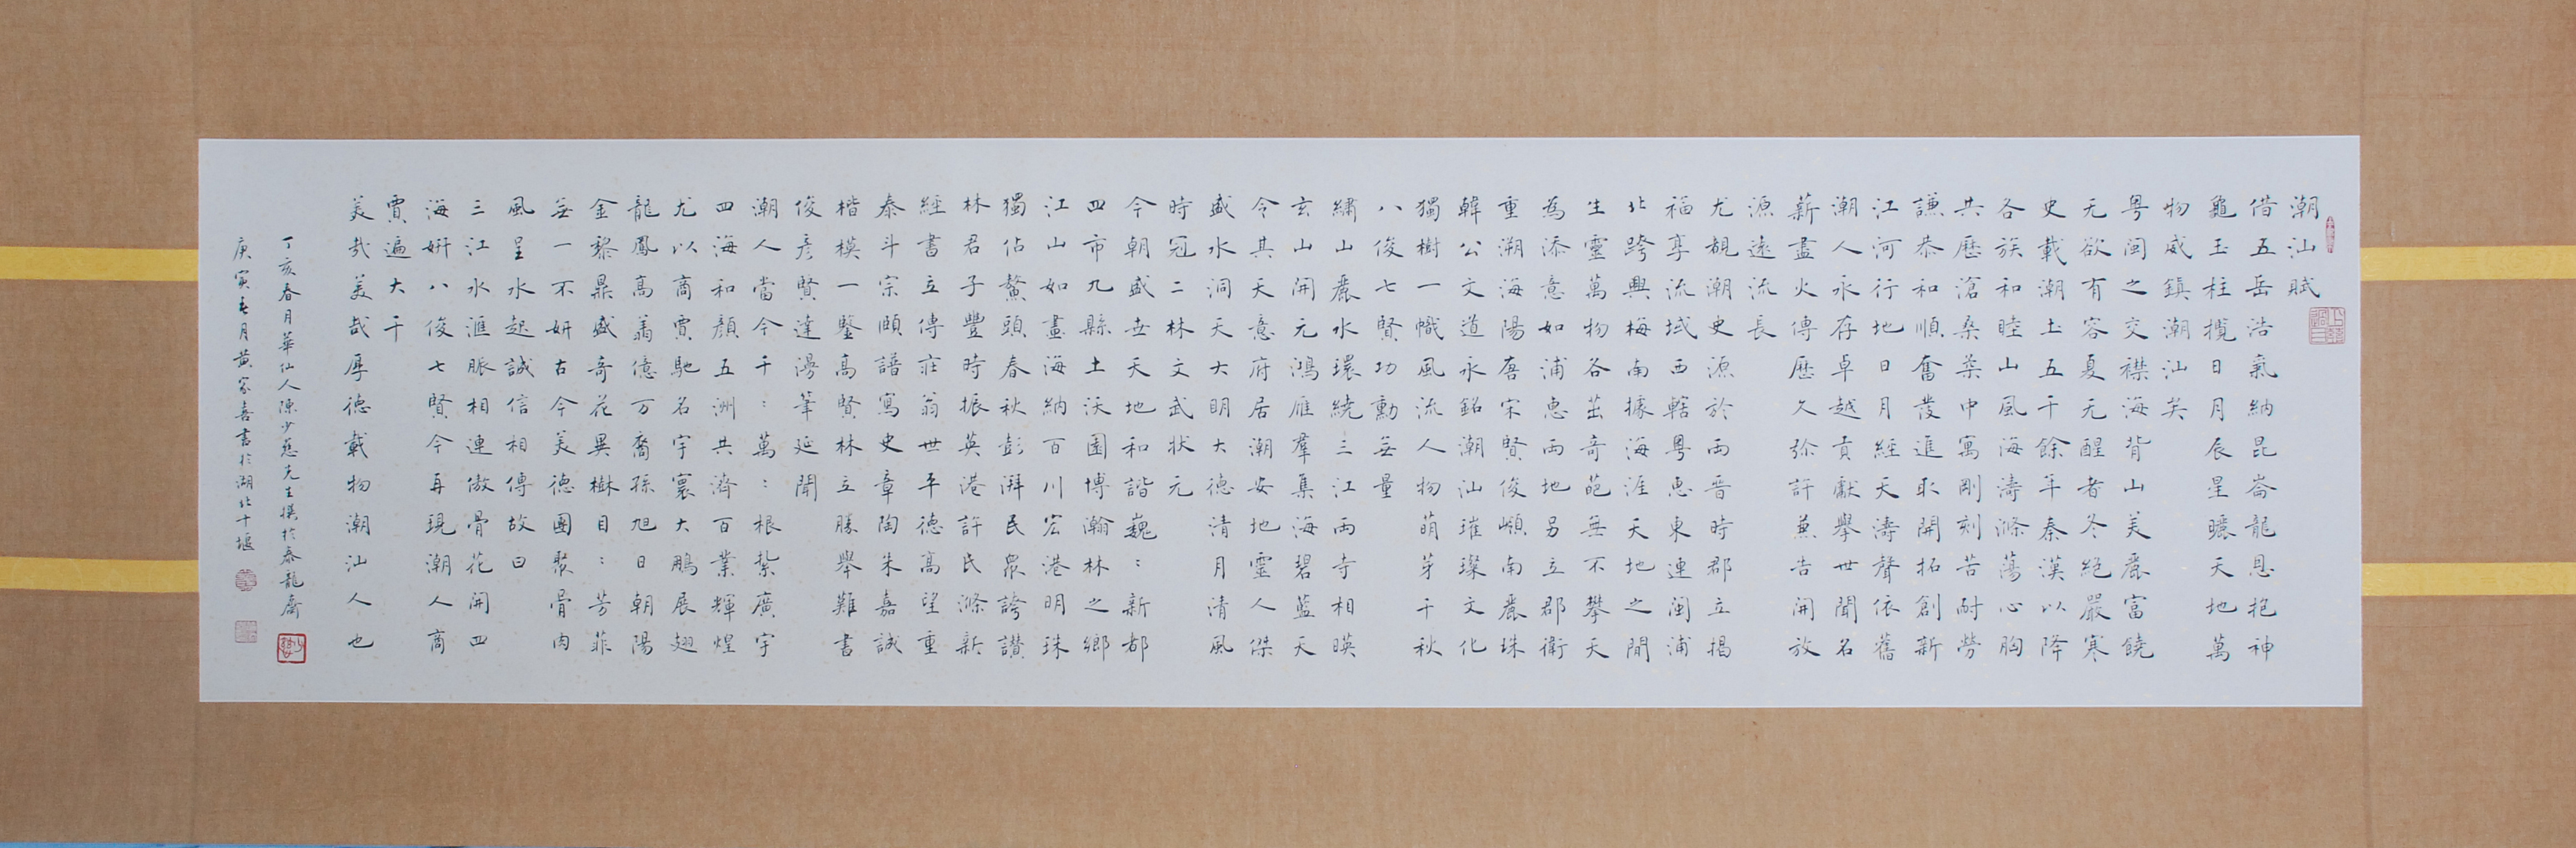 潮汕賦
借五岳浩氣納昆崙龍恩抱神
龜玉柱攬日月辰星曬天地萬
物威鎮潮汕英
粵閩之交襟海背山美麗富饒
无欲有容夏无酲者冬絕嚴寒
史載潮土五千餘年秦漢以降
各族和睦山風海濤滌蕩心胸
共歷滄桑柒中寓剛刻苦耐勞
謙恭和順奮發進取開拓創新
江河行地日月經天濤聲依舊
潮人永存卓越貢獻舉世聞名
薪盡火傳歷久弥訐兼吉開放
源遠流長
尤覩潮史源於兩晋時郡立揭
福享流域西轄粵惠東連閩浦
北跨興梅南據海涯天地之間
生靈萬物各茁奇葩無不攀天
為添意如浦惠兩地另立郡衛
重溯海陽唐宋賢俊嶺南麗珠
韓公文道永銘潮汕璀璨文化
獨樹一幟風流人物萌芽千秋
八俊七賢功勳無量
繡山麗水環繞三江兩寺相暎
玄山開元鴻雁羣集海碧藍天
令其天意府居潮安地靈人傑
盛水洞天大明大德清月清風
時冠二林文武狀元
今朝盛世天地和諧巍：新都
四市九縣土沃園博瀚林之鄉
江山如畫海納百川宏港明珠
獨佔鰲頭春秋彭湃民眾誇讚
林君子豐時振英港訐民滌新
經書立傳莊翁世平德高望重
泰斗宗頤譜寫史章陶朱嘉誠
楷模一鑒高賢林立勝舉難書
俊彥賢達湯筆延聞
潮人當今千：萬：根紮廣宇
四海和顏五洲共濟百業輝煌
尤以商賈馳名宇寰大鵬展翅
龍鳳高翥億万裔孫旭日朝陽
金黎鼎盛奇花異樹目：芳菲
無一不妍古今美德團聚骨肉
風呈水起誠信相傳故曰
三江水滙脈相連傲骨花開四
海妍八俊七賢今再現潮人商
賈遍大千
美哉美哉厚德載物潮汕人也
丁亥春月華仙人陳少慈先生撰於泰龍齋
庚寅春月黄家喜書於湖北十堰